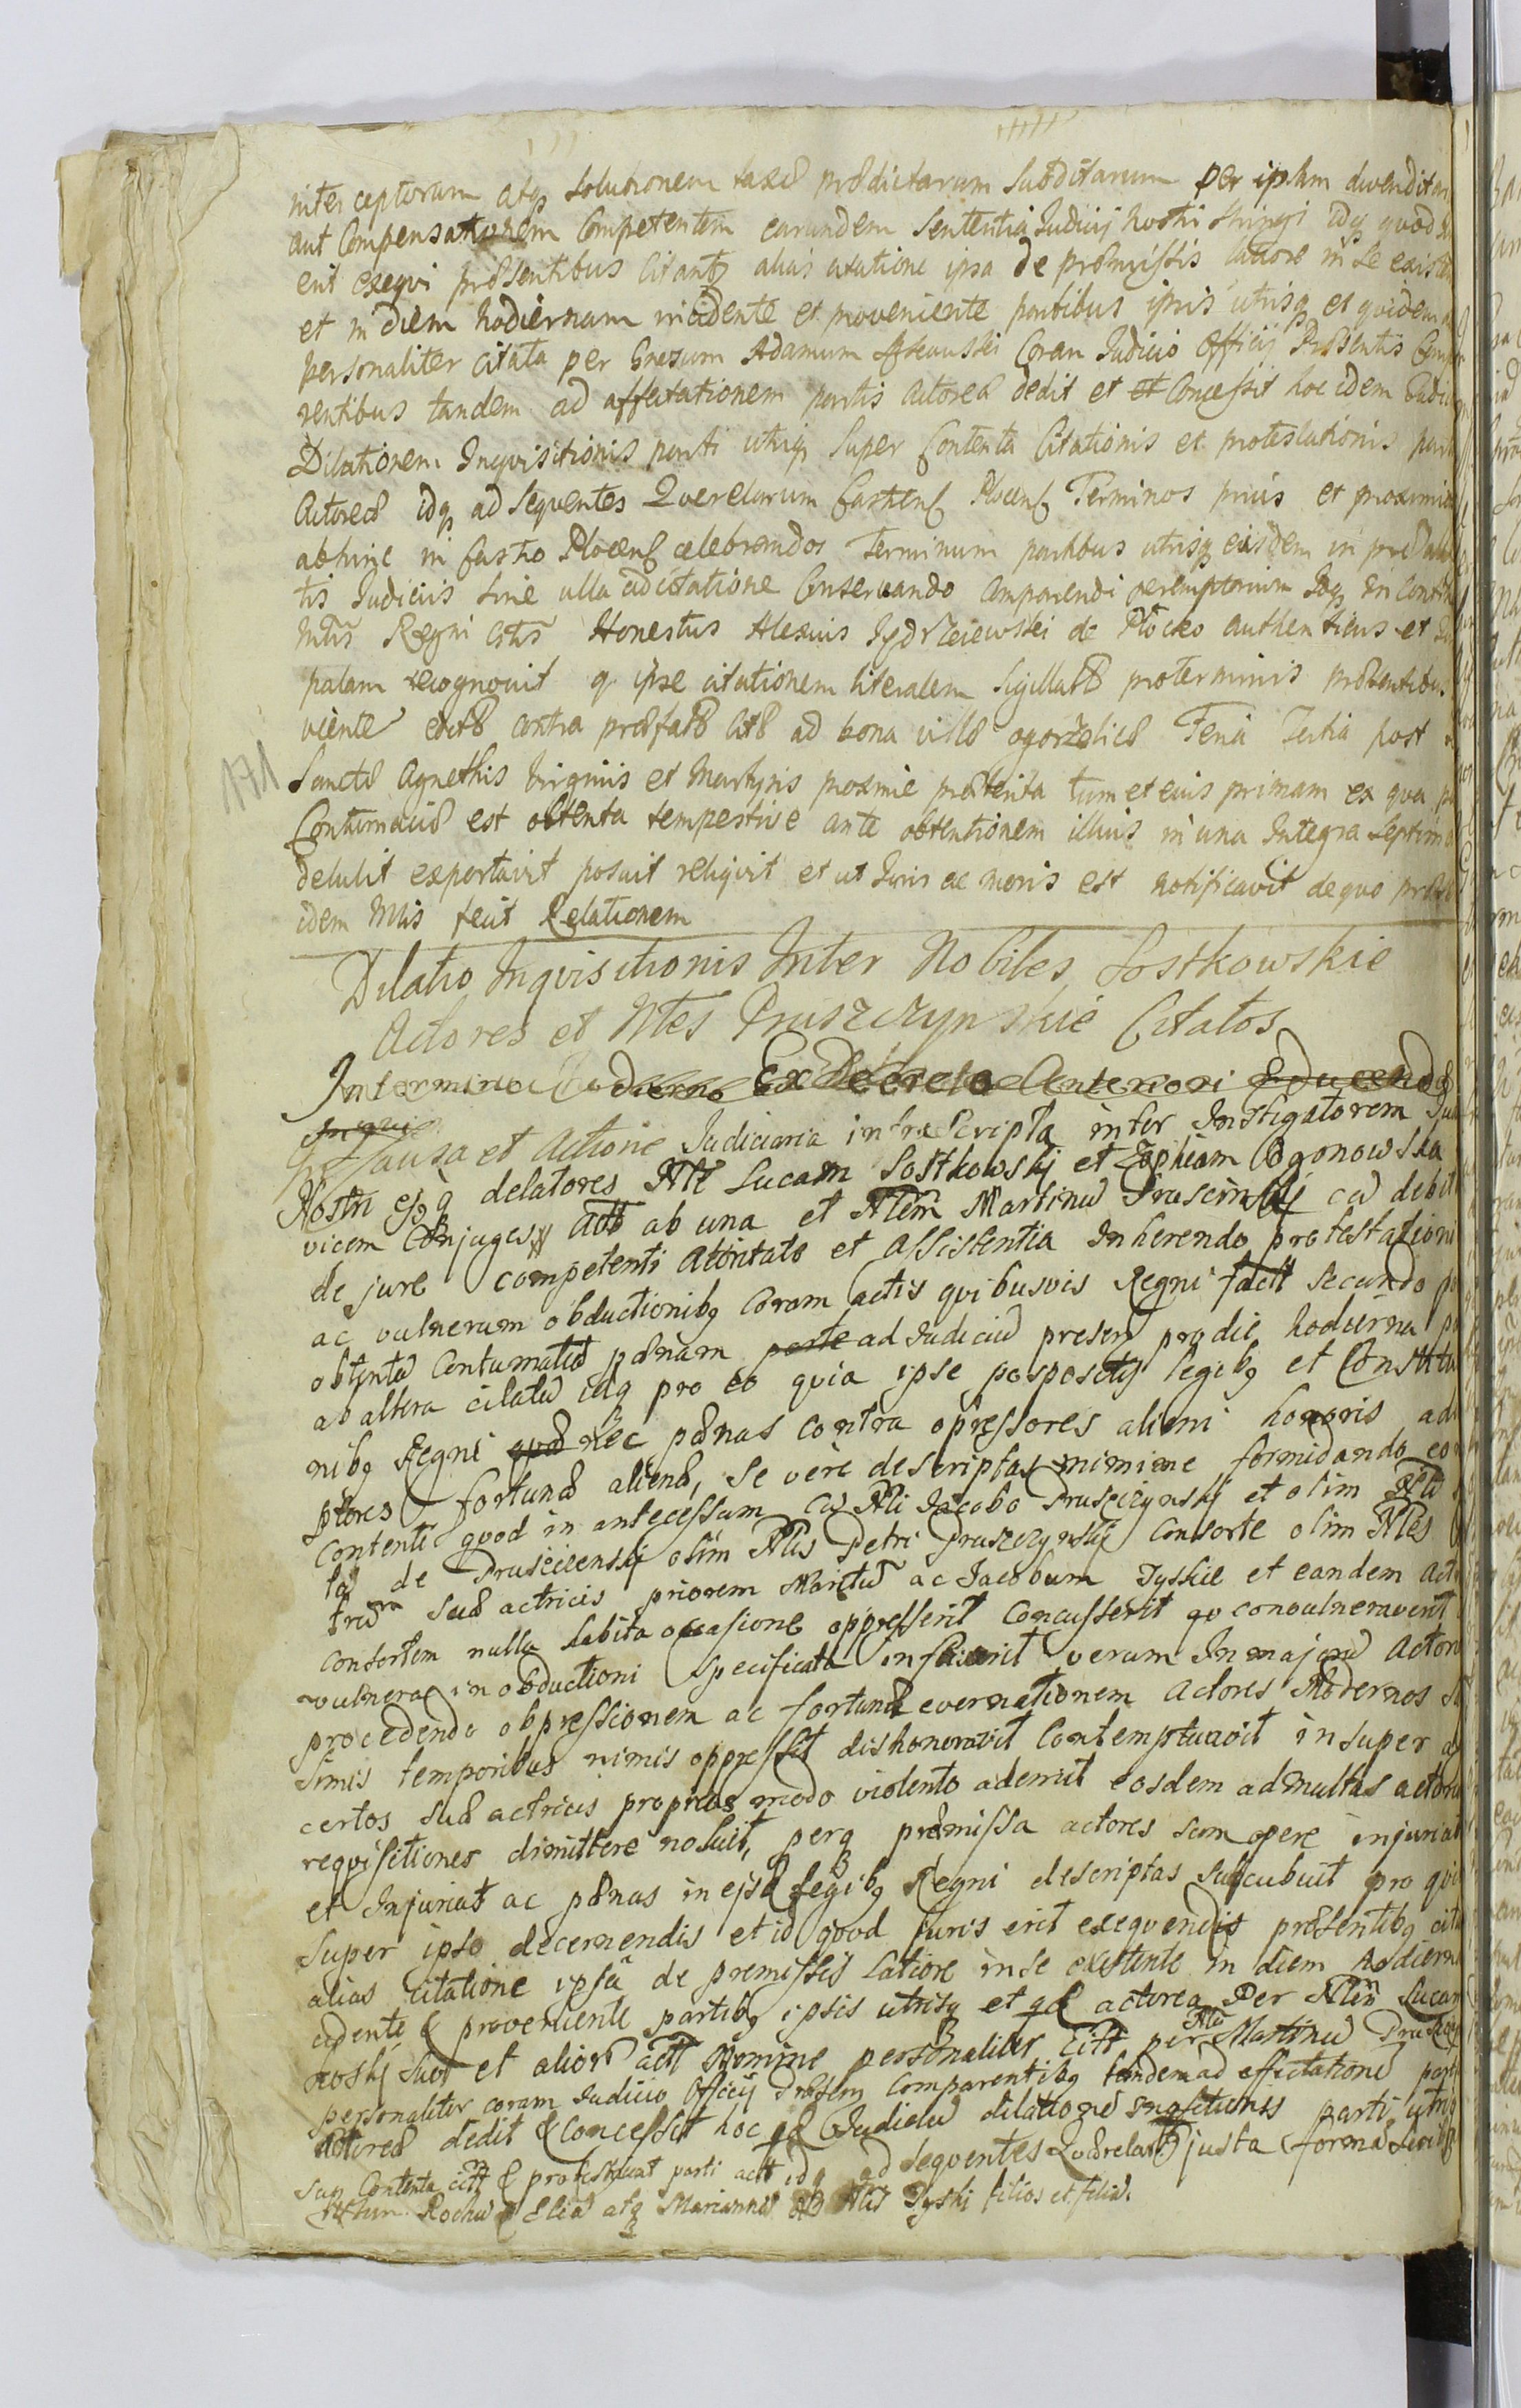 inter ceptorum atq solutionem taxæ prædictarum Subditarum per ipsam divenditar
aut Compensationem Competentem earundem Sententia Judicij nostri idq quod
erit exequi præsentibus Citant alias citatione ipsa de præmissis latiore in se existen
et in diem hodiernam incidente et proveniente partibus ipsis utrisq et quidem
personaliter citata per Gnesum Adamum Coram Judicio Officij Præsentis Comp
rentibus tandem ad affectationem partis actoreæ dedit et et Concessit hoc idem Judic
Dilationem Inqvisitionis parti utriq Super Contenta Citationis et protestationis part
Actoreæ idq ad Seqventes Querelarum Castrens Plocens Terminos prius et proximio
abhinc in Castro Plocens celebrandos Terminum partibus utrisq eisdem in præ
tis Judiciis Sine ulla adcitatione Conservando Comparendi peremptorium Ibq in Contin
Mtris Regni Glis Honestus Alexius Jydrzeiewski de Plocko authenticus et
palam recognovit q ipse citationem literalem Sigillatæ proterminis præsentibus
viente editæ contra præfatæ Citæ ad bona villæ ogorzelice Feria Tertia post
Sanctæ Agnethis Virginis et Martyris proxime præterita tum et eius primam ex qva
Contumaciæ est obtenta tempestive ante obtentionem illius in una Integra Septim
detulit exportavit posuit reliqvit et ut Juris ac moris est notificavit de quo præ
idem Mtris fecit Relationem
Dilatio Inqvisitionis Inter Nobiles Sostkowskie
Actores et Ntes Pruszczynskie Citatos
In termino hodierno Ex Decreto Anteriori Educendæ
Inqui
In Causa et Actione Judiciaria infra Scripta inter Instigatorem Jud
Nostri ejq q delatores Nlē Lucam Sostkowskj et Zophiam Ogonowska
vicem Conjuges Actt ab una et Nlem Martinū Pruscinskj cū debit
de jure competenti Attoritate et Assistentia Inherendo protestationi
ac vulnerum obductionibq Coram actis qvibusvis Regni factt Secundo
obtentā Contumatiā pænam parte ad Judiciū presens pro die hodierna
ab altera citatū idq pro eo quia ipse pospositis legibq et Constitu
nibq Regni quod nec pænas contra opressores alieni honoris ad
ptores fortunæ alienæ, Se vere descriptas minime formidando eo
Contenti quod in antecessum cū Nli Jacobo Pruszczynskj et olim Nli
la de Pruscicenskj olim Nlis Petri Pruszczynskj Consorte olim Nles
tred Suæ actricis priorem Maritū ac Jacobum Tyskie et eandem Act
Consortem nulla habita occasione oppresserit Concusserit qo convulneraverit
vulnera in obductioni Specificata inflixerit verum In majorū Actoru
procedendo obpressionem ac fortunæ evernationem Actores Modernos
Simis temporibus nimis oppressit dishonoravit Contemptuavit in super
certos Suæ actricis proprios modo violento ademit eosdem ad Multas actoru
reqvisitiones dimittere noluit, perq præmissa actores Summopere injuriat
et Injuriat ac pænas in ejsd legibq Regni descriptas Succubuit pro qvi
Super ipso decernendis et id qvod Juris erit exeqvendis præsentibq cita
alias citatione ipsā de premissis Latiore in se existente in diem hodiern
cidente & proveniente partibq ipsis utrisq et qd actorea Per Nlem Lucam
koskj Suo et aliorū Actt Nomine personaliter Citt per Nlē Martinū Prusczy
personaliter coram Judicio Officij Præsens Comparentibq tandem ad effectationē part
Actoreæ dedit & Concessit hoc qd Judiciū dilationē Inqsitionis parti utriq
Sup Contenta citt & protestuat parti actt idq ad Seqventes Quærelarū justa formā Scrib
Rochū & Eliā atq Mariannā Nlis Tyski filios et filiā.
171